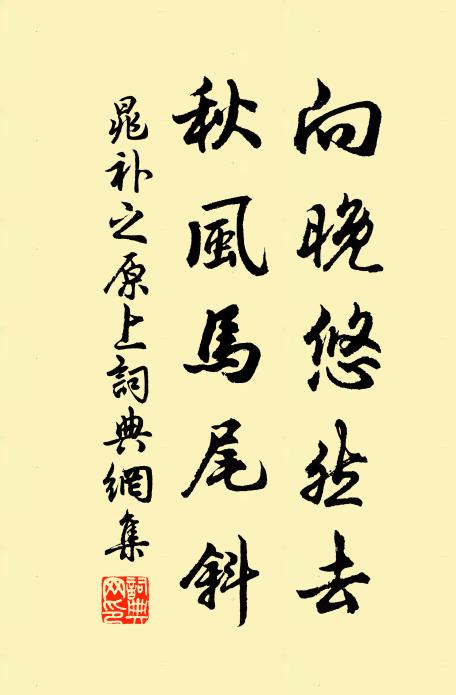 向晚悠然去
秋風馬尾斜
晁补之原上詞典網集
詞典網印